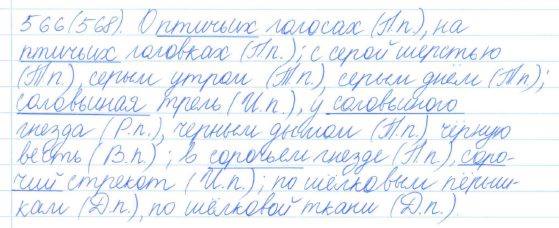 566(568). О птичьих голосах (П.п.), на
птичьих головках (П.п.); с серой шерстью
(Т.п.), серым утром (Т.п.), серым днём (Т.п.);
соловьиная трель (И.п.), у соловьиного
гнезда (Р.п.), чёрным дымом (П.п.) чёрную
весть (В.п.); в сорочьем гнезде (П.п.), соро-
чий стрекот (И.п.); по шёлковым пёрыш-
кам (Д.п.), по шёлковой ткани (Д.п.).